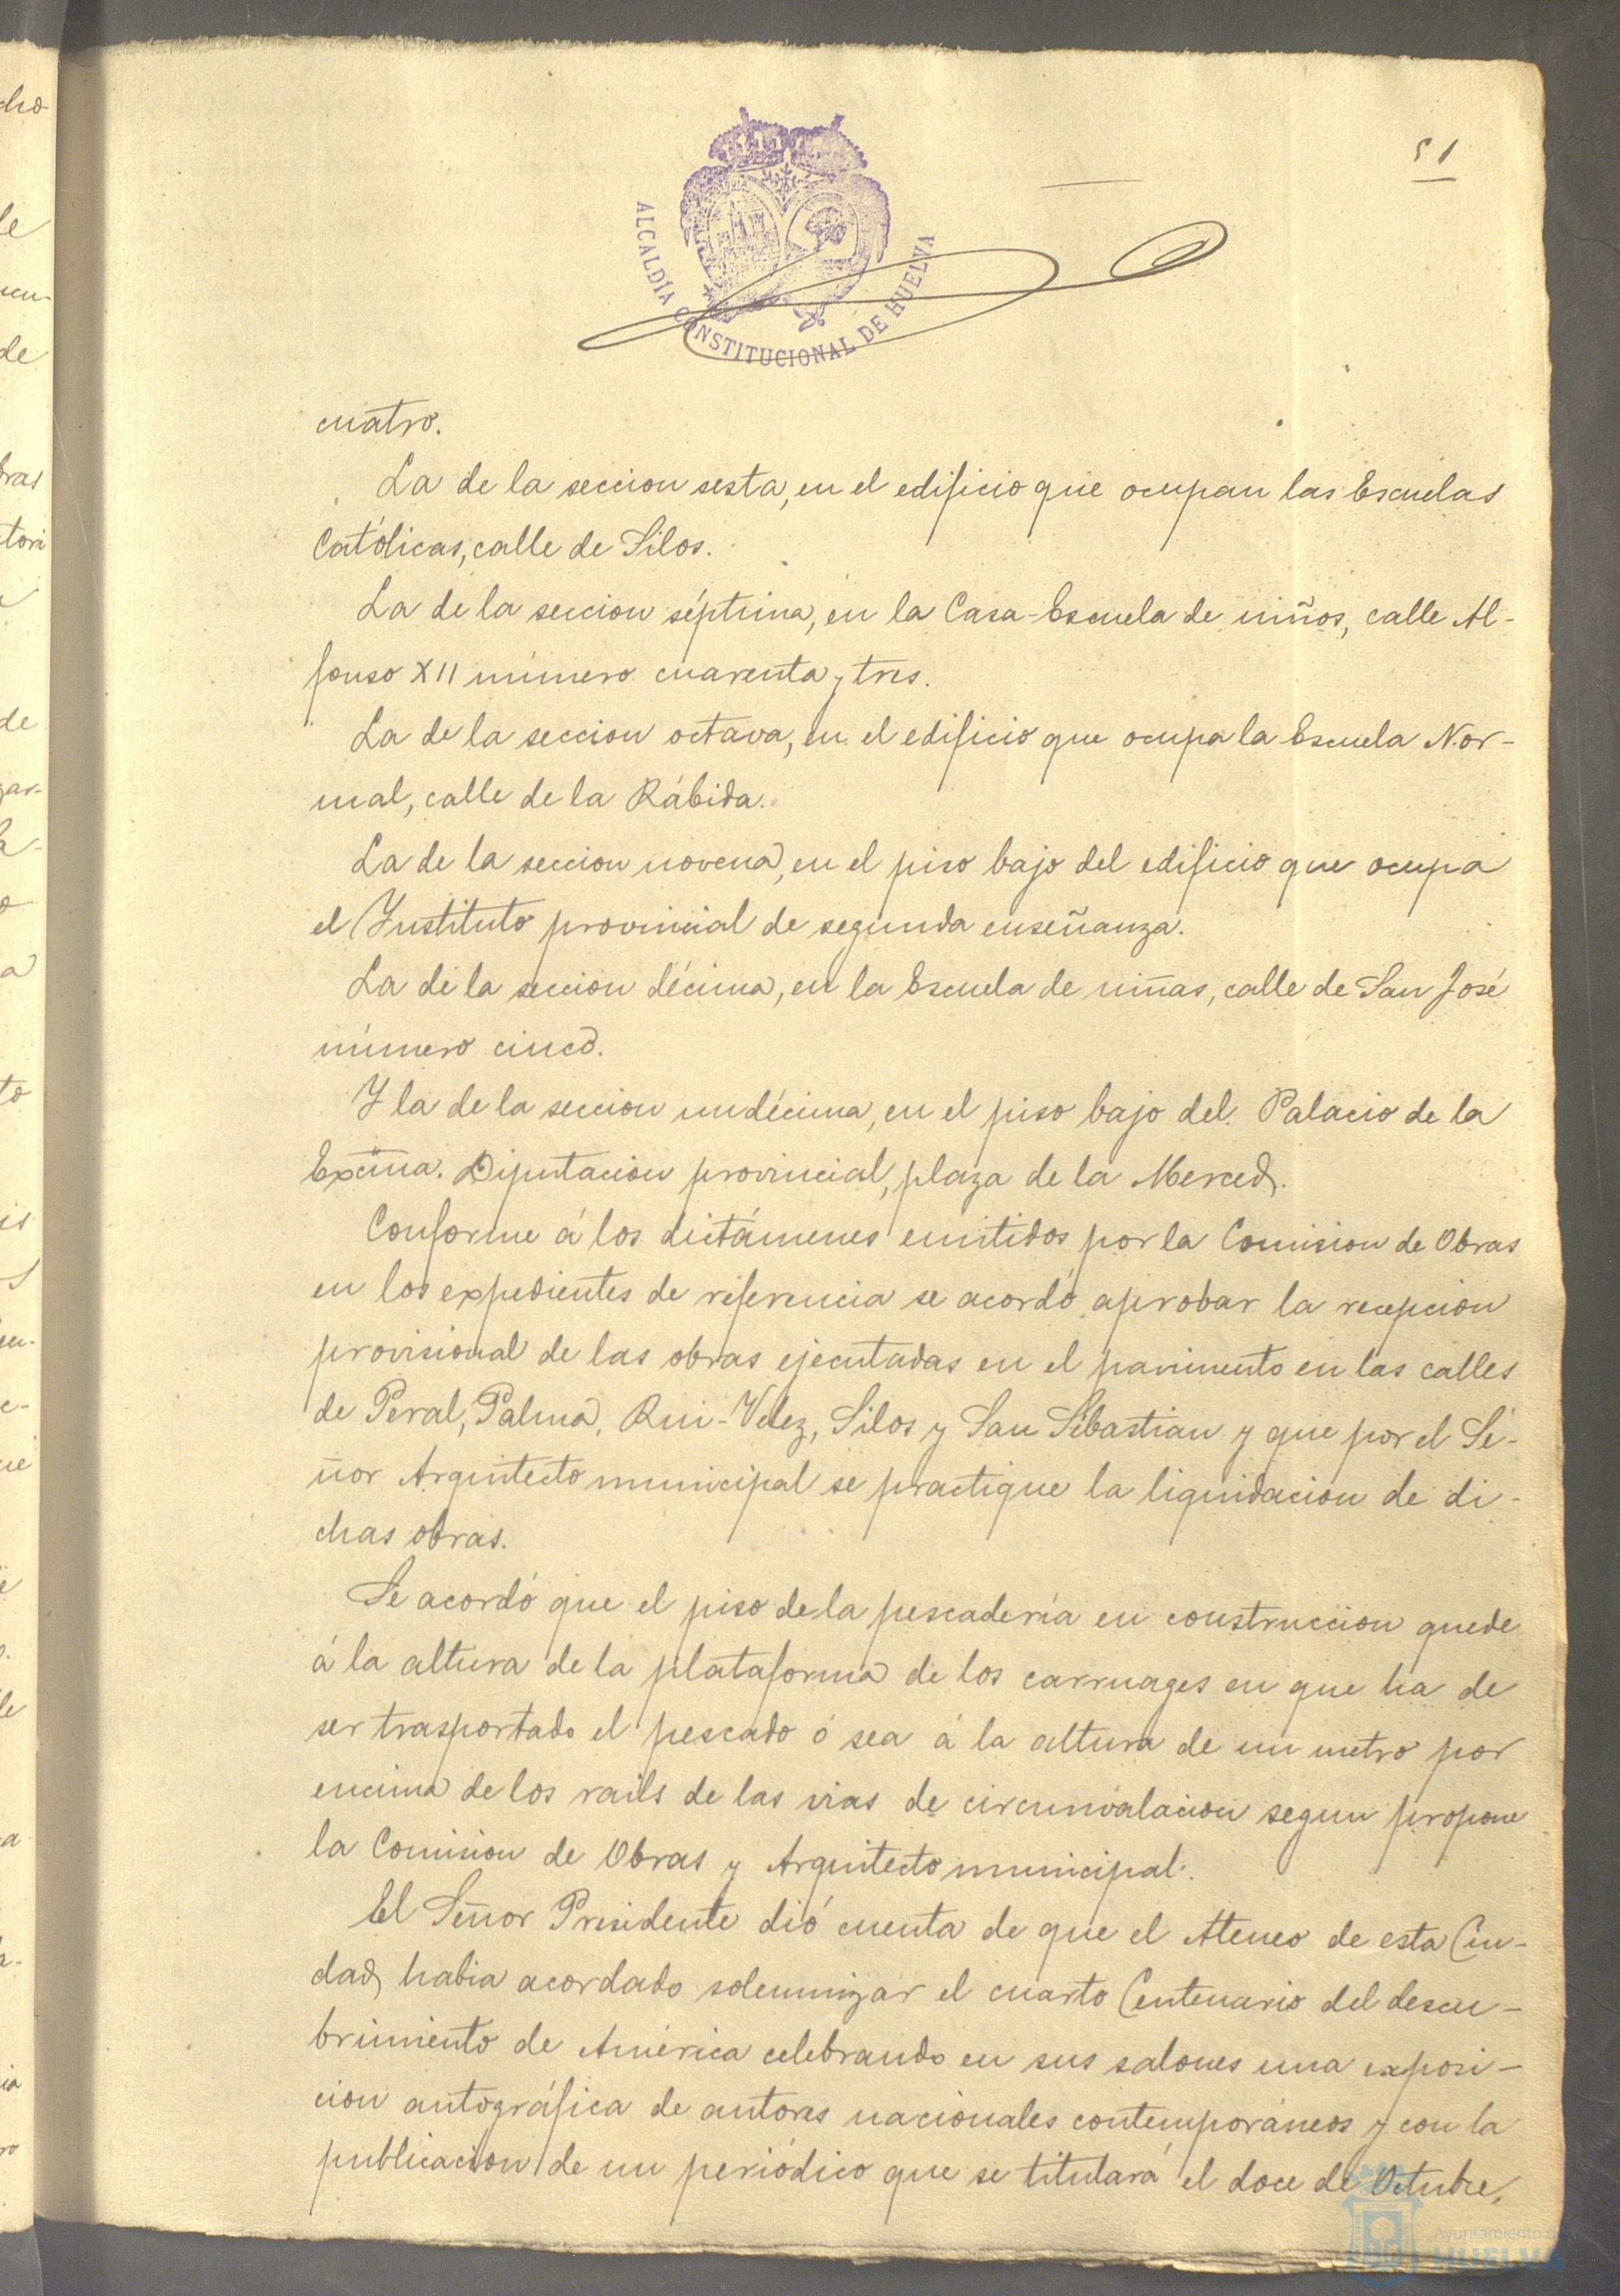 51
ALCALDÍA CONSTITUCIONAL DE HUELVA
cuatro.
La de la seccion sesta, en el edificio que ocupan las Escuelas
Católicas, calle de Silos.
La de la seccion séptima, en la Casa-Escuela de niños, calle Al-
fonso XII número cuarenta y tres.
La de la seccion octava, en el edificio que ocupa la Escuela Nor-
mal, calle de la Rábida.
La de la seccion novena, en el piso bajo del edificio que ocupa
el Instituto provincial de segunda enseñanza.
La de la seccion décima, en la Escuela de niñas, calle de San José
número cinco.
Y la de la seccion undécima, en el piso bajo del Palacio de la
Excma. Diputacion provincial, plaza de la Merced.
Conforme á los dictámenes emitidos por la Comision de Obras
en los expedientes de referencia se acordó aprobar la recepcion
provisional de las obras ejecutadas en el pavimento en las calles
de Peral, Palma, Rui-Velez, Silos y San Sebastian y que por el Se-
ñor Arquitecto municipal se practique la liquidacion de di-
chas obras.
Se acordó que el piso de la pescadería en construccion quede
á la altura de la plataforma de los carruages en que ha de
ser trasportado el pescado ó sea á la altura de un metro por
encima de los rails de las vias de circunvalacion segun propone
la Comision de Obras y Arquitecto municipal.
El Señor Presidente dió cuenta de que el Ateneo de esta Ciu-
dad, habia acordado solemnizar el cuarto Centenario del descu-
brimiento de América celebrando en sus salones una exposi-
cion autográfica de autores nacionales contemporáneos y con la
publicacion de un periódico que se titulará el doce de Octubre,
Ayuntamiento de
HUELVA